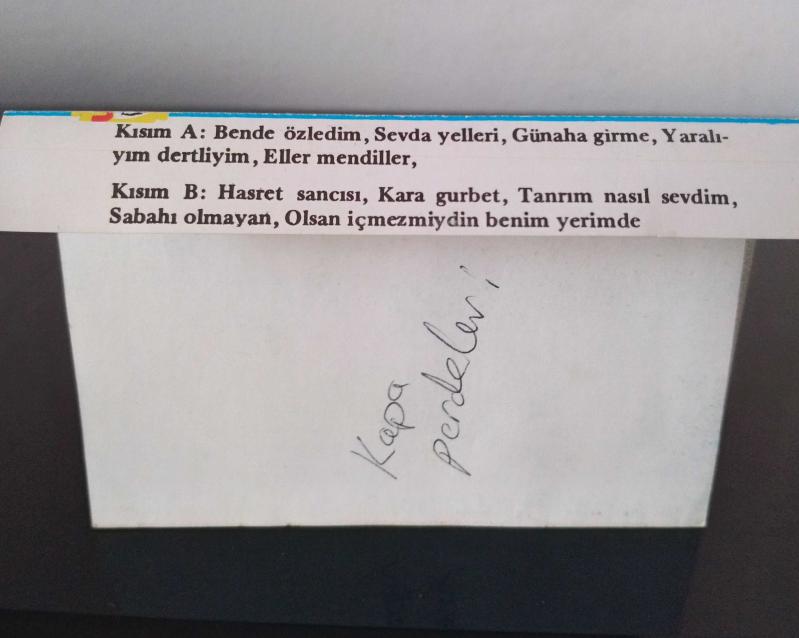 Kısım A: Bende özledim, Sevda yelleri, Günaha girme, Yaralı-
yım dertliyim, Eller mendiller,
Kısım B: Hasret sancısı, Kara gurbet, Tanrım nasıl sevdim,
Sabahı olmayan, Olsan içmezmiydin benim yerimde
Kapa
perdeleri